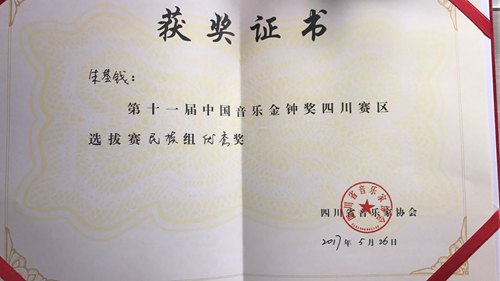 获奖证书
朱基钱：
第十一届中国音乐金钟奖四川赛区
选拔赛民族组优秀奖
四川省音乐家协会
四川省音乐家协会
2017年5月26日